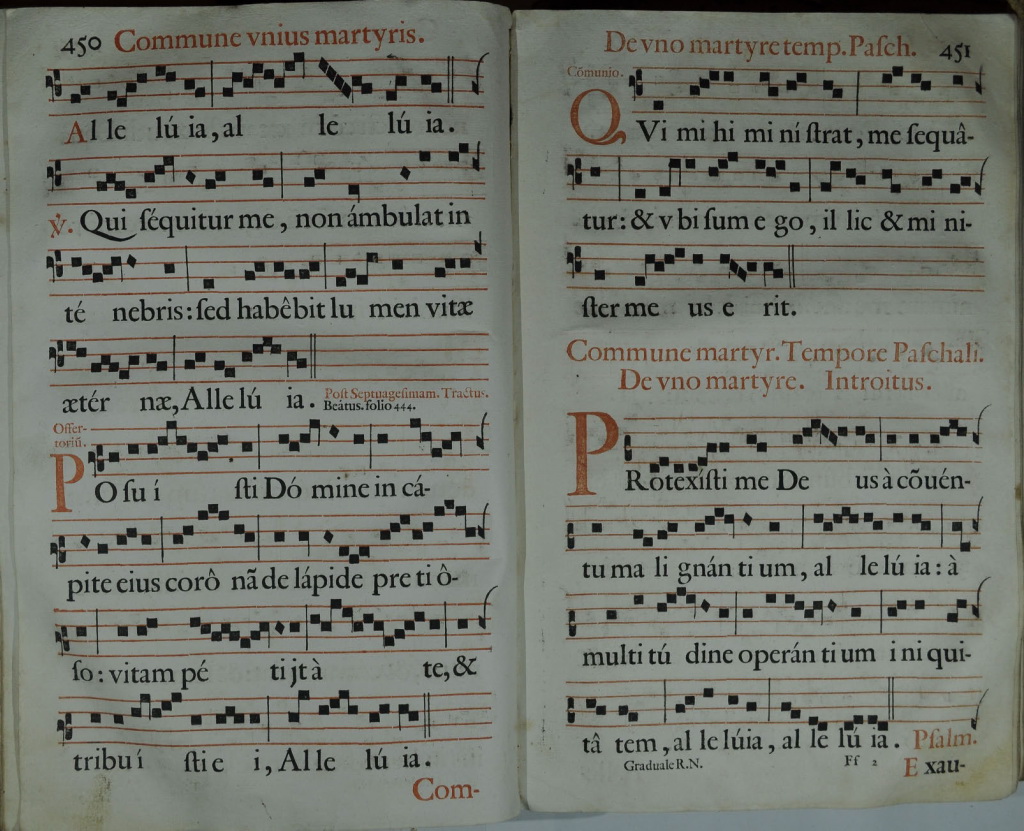 450 Commune vnius martyris.
Al le lú ia, al le lú ia.
℣. Qui ſéquitur me, non ámbulat in
té nebris: ſed habêbit lu men vitæ
ætér næ, Alle lú ia. Poſt Septuageſimam. Tractus.
Beátus. folio 444.
Offer-
toriū.
PO ſu í ſti Dó mine in cá-
pite eius corô nã de lápide pre ti ô-
ſo: vitam pé ti jt à te, &
tribu í ſti e i, Al le lú ia.
Com-
De vno martyre temp. Paſch. 451
Cõmunio.
QVi mi hi mi ní ſtrat, me ſequâ-
tur: & v bi ſum e go, il lic & mi ni-
ſter me us e rit.
Commune martyr. Tempore Paſchali.
De vno martyre. Introitus.
PRotexíſti me De us à cõuén-
tu ma li gnán ti um, al le lú ia: à
multi tú dine operán ti um i ni qui-
tâ tem, al le lúia, al le lú ia. Pſalm.
Graduale R.N. Ff 2 Exau-